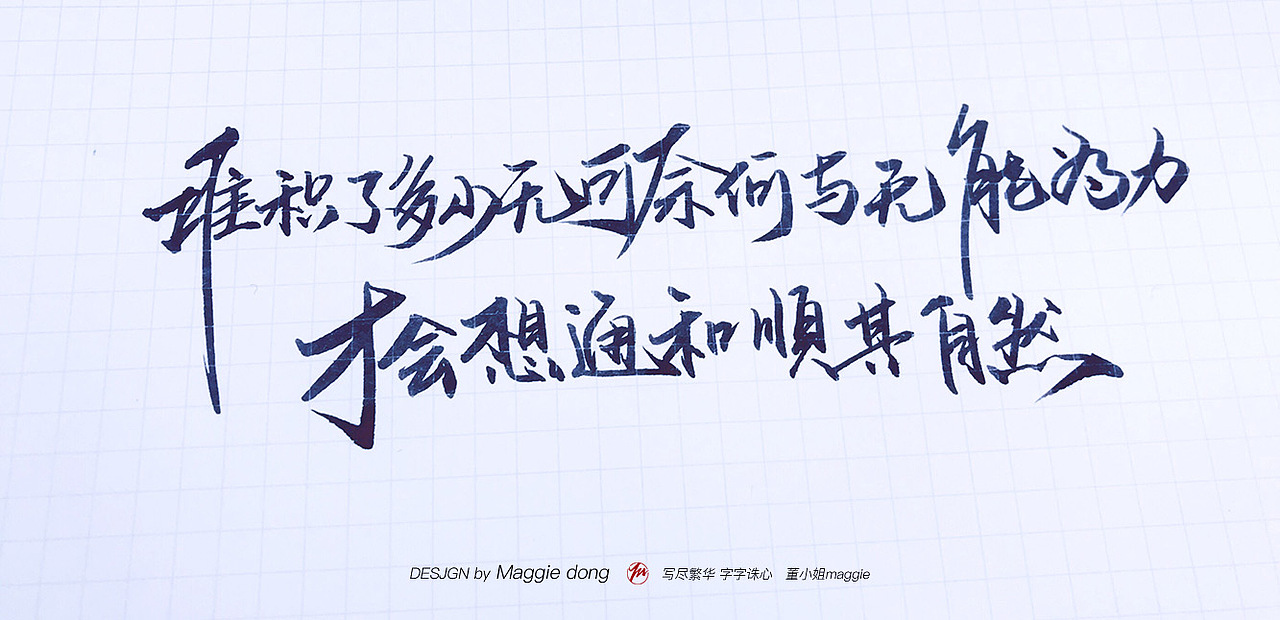 堆积了多少无可奈何与无能为力
才会想通和順其自然
DESJGN by Maggie dong 写尽繁华 字字诛心 董小姐maggie